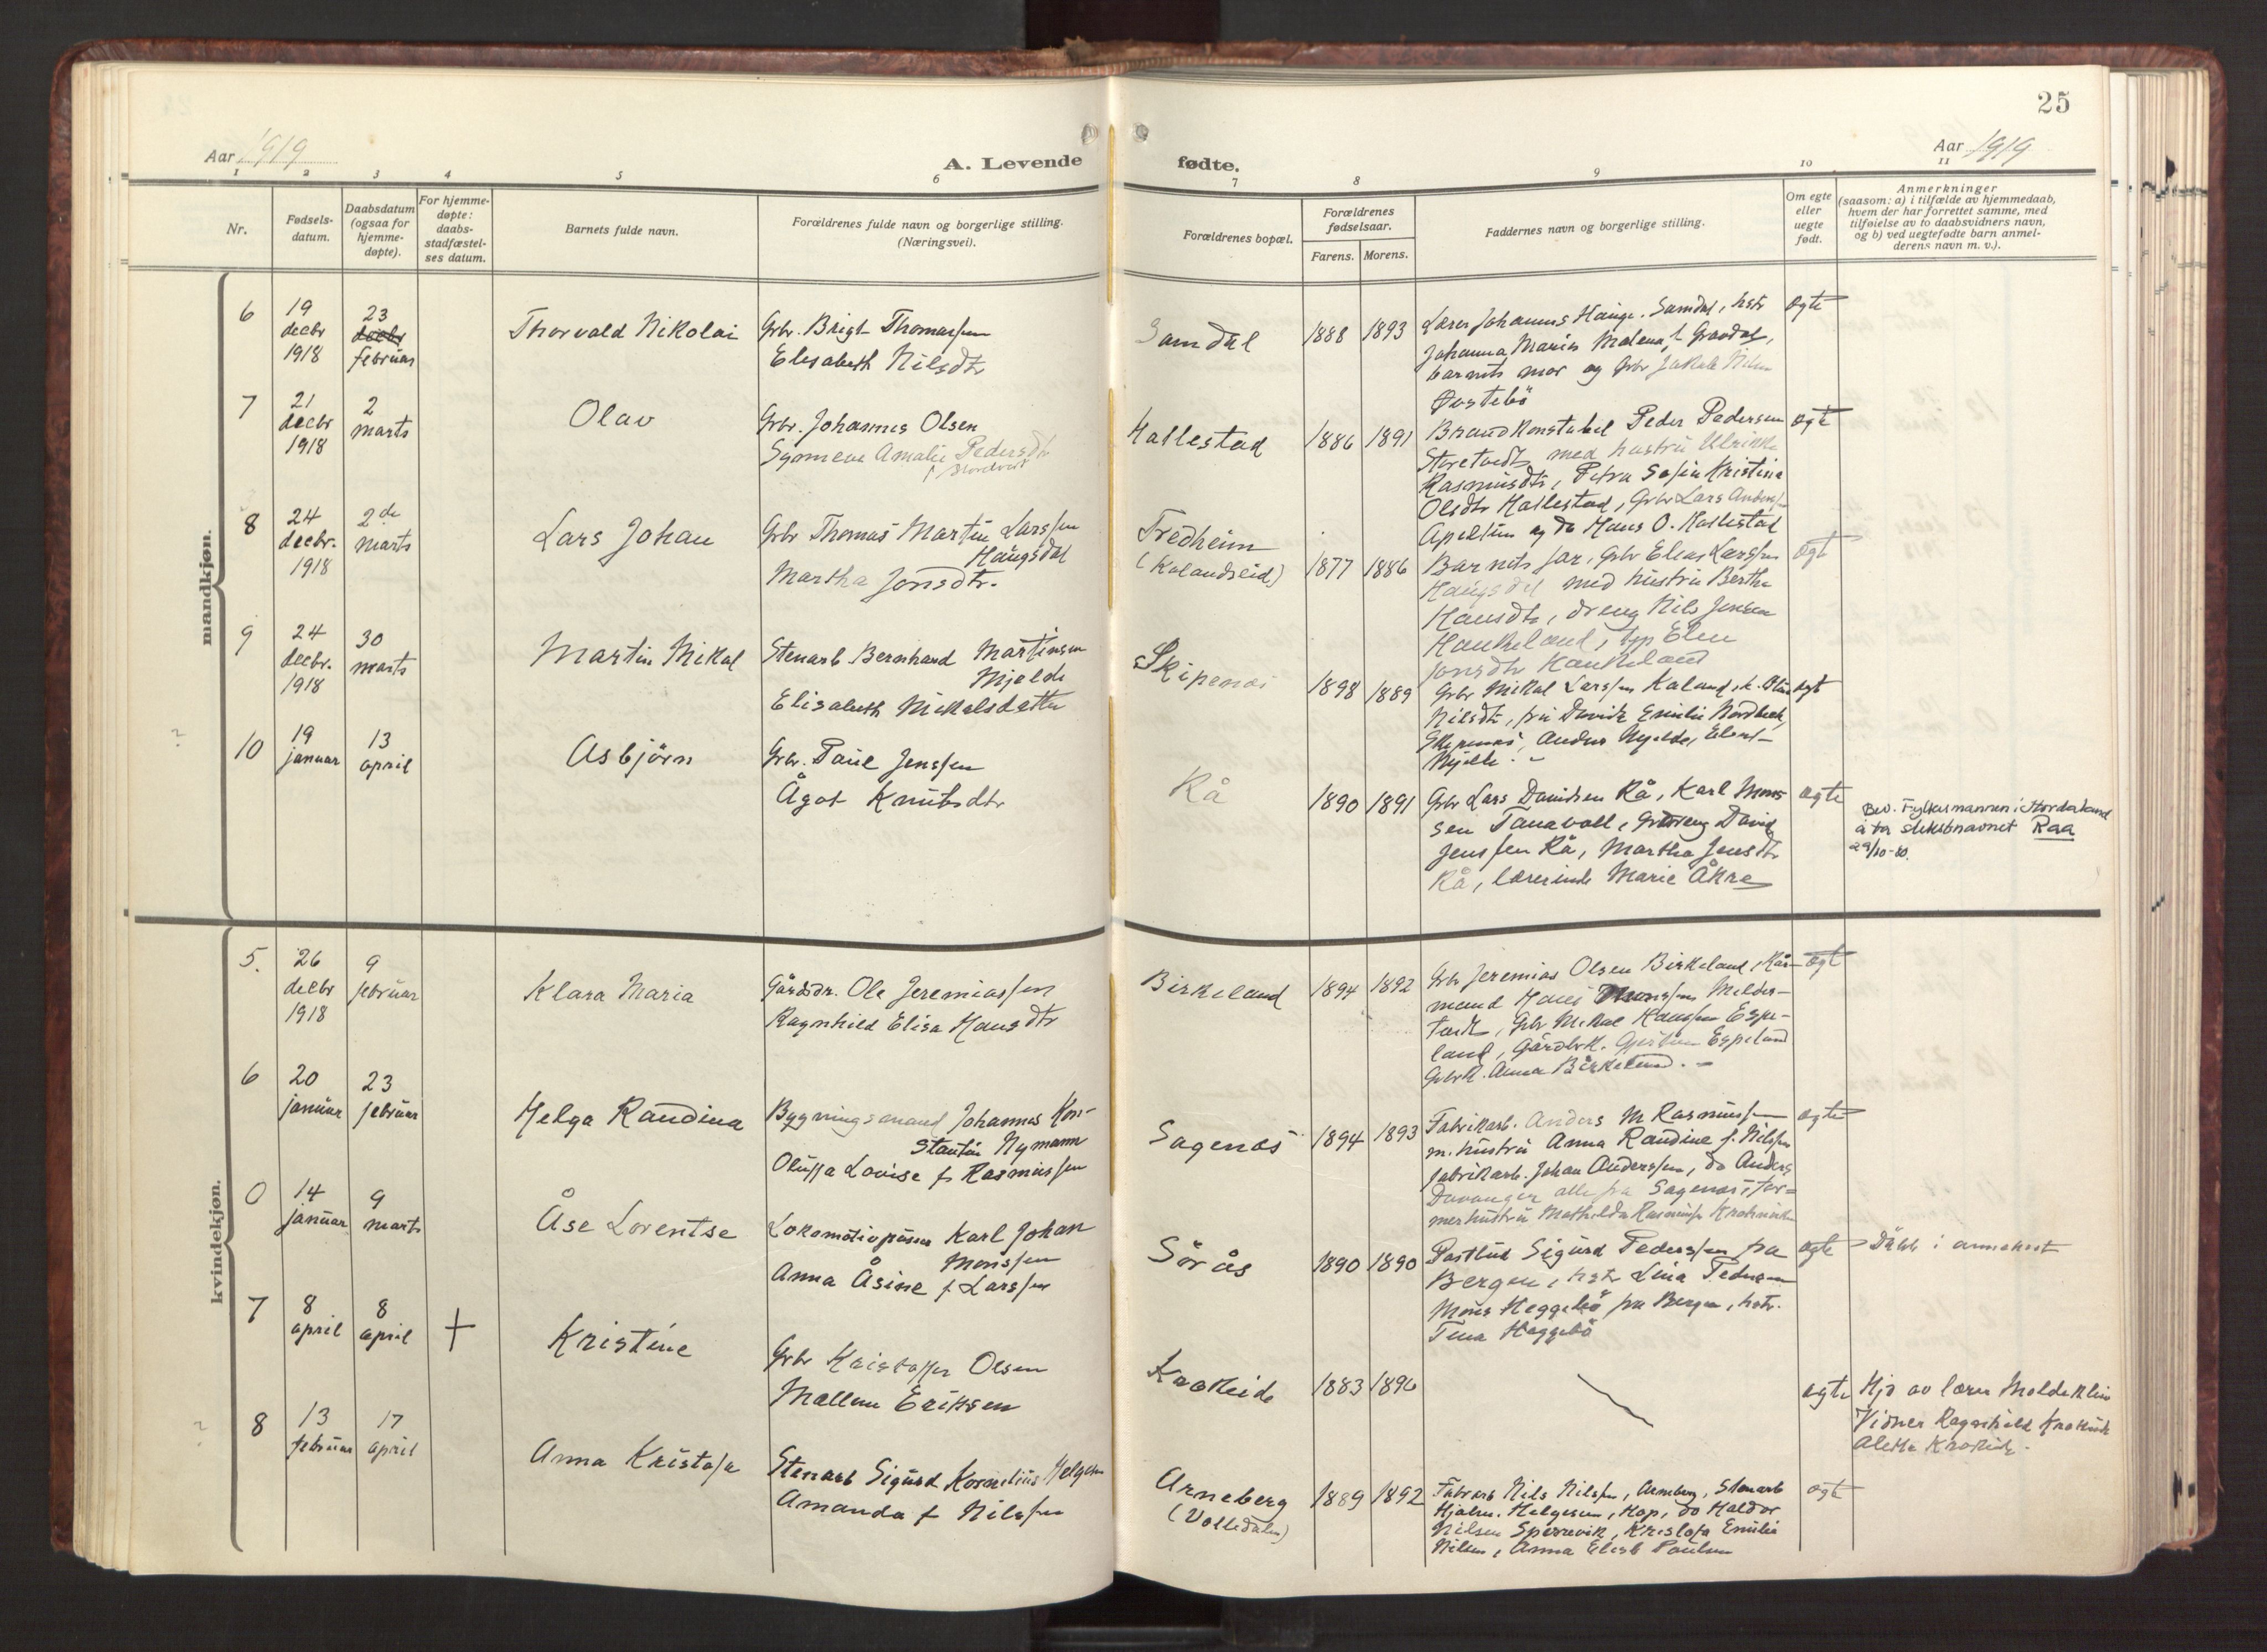 25
Aar 1919
A. Levende
fødte.
Aar 1919
1 2 3 4 5 6 7 8 9 10 11
Nr.
Fødsels-
datum.
Daabsdatum
(ogsaa for
hjemme-
døpte).
For hjemme-
døpte:
daabs-
stadfæstel-
ses datum.
Barnets fulde navn.
Forældrenes fulde navn og borgerlige stilling.
(Næringsvei).
Forældrenes bopæl.
Forældrenes
fødselsaar.
Farens. Morens.
Faddernes navn og borgerlige stilling.
Om egte
eller
uegte
født.
Anmerkninger
(saasom: a) i tilfælde av hjemmedaab,
hvem der har forrettet samme, med
tilføielse av to daabsvidners navn,
og b) ved uegtefødte barn anmel-
derens navn m. v.).
mandkjøn.
6
19
decbr
1918
23
decbr
februar
Thorvald Nikolai
Grbr. Brigt Thomassen
Elisabeth Nilsdtr
Samdal
1888 1893
Lærer Johannes Hauge, Samdal, hstr
Johanna Marie Malena f. Gravdal,
barnets mor og Grbr Jakob Nilsen
Øvstebö
egte
7
21
decbr
1918
2
marts
Olav
Grbr. Johannes Olsen
Synneva Amalie Pedersdtr
Hallestad
1886 1891
Brandkonstabel Peder Pedersen
Storetvedt, med hustru Ulrikke
Rasmusdtr, Petra Sofie Kristine
Olsdtr Hallestad, Grbr Lars
Apeltun og do Hans O. Hallestad
egte
8
24
decbr.
1918
2de
marts
Lars Johan
Grbr Thomas Martin Larssen
Haugsdal
Martha Jonsdtr.
Fredheim
(Kalandseid)
1877 1886
Barnets far, Grbr Elias Larssen
Haugsdal med hustru Bertha
Hansdtr, dreng Nils Jensen
Haukeland, Elen
Jonsdtr Haukeland
egte
9
24
decbr.
1918
30
marts
Martin Mikal
Stenarb. Bernhard Martinsen
Mjelde
Elisabeth Mikalsdatter
Skipenes
1898 1889
Grbr Mikal Larssen Kaland, h.
Nilsdtr, fru Emilie Nordbek,
Skipenes, Anders Mjelde,
Mjelde. -
egte
10
19
januar
13
april
Asbjörn
Grbr. Paul Jenssen
Ågot Knutsdtr
Rå
1890 1891
Grbr Lars Davidsen Rå, Karl Mons
sen Tanavoll, David
Jenssen Rå, Martha Jensdtr
Rå, lærerinde Marie Åkre
egte
Bev. Fylkesmannen i Hordaland
å ta slektsnavnet Raa
29/10-80.
kvindekjøn.
5.
26
decbr
1918
9
februar
Klara Maria
Gårdbr. Ole Jeremiassen
Ragnhild Elisa Hansdtr
Birkeland
1894 1892
Grbr Jeremias Olsen Birkeland, Kår-
mand Hans Monssen Milder-
tvedt, Grbr Mikal Hanssen Espe-
land, Gårdbrk. Espeland
Grbrk. Anna Birkeland. -
egt
6
20
januar
23
februar
Helga Raudina
Bygningsmand Johannes Kon-
stantin Nymann
Oluffa Lovise f. Rasmussen
Sagenes
1894 1893
Fabrikarb. Anders M Rasmussen
m. hustru Anna Raudine f. Nilssen
fabrikarb. Johan Anderssen, do Anders
Davanger alle fra Sagenes, for-
merhustru Mathilda Rasmussen
egte
0
14
januar
9
marts
Åse Lorentse
Lokomotivpusser Karl Johan
Monssen
Anna Åsine f Larssen
Sörås
1890 1890
Postbud Sigurd Pederssen fra
Bergen, hstr Lina Pedersen
Mons Heggebö fra Bergen, hstr.
Tina Heggebö
egte
Däbt i annekset
7
8
april
8
april
+
Kristine
Grbr Kristoffer Olsen
Mallene Eriksen
Krokeide
1883 1896
egte
Hjd av lærer Moldeklev
Vidner Ragnhild Krokeide
Aletta Krokeide.
8
13
februar
17
april
Anna Kristofa
Stenarb Sigurd Kornelius Helgesen
Amanda f Nilssen
Arneberg
(Volledalen)
1889 1892
Fabrarb Nils Nilssen, Arneberg, Stenarb
Hjalm. Helgesen, Hop, do Haldor
Nilsen Sperrevik, Kristofa Emilie
Nilsen, Anna Elisb Paulsen
egt